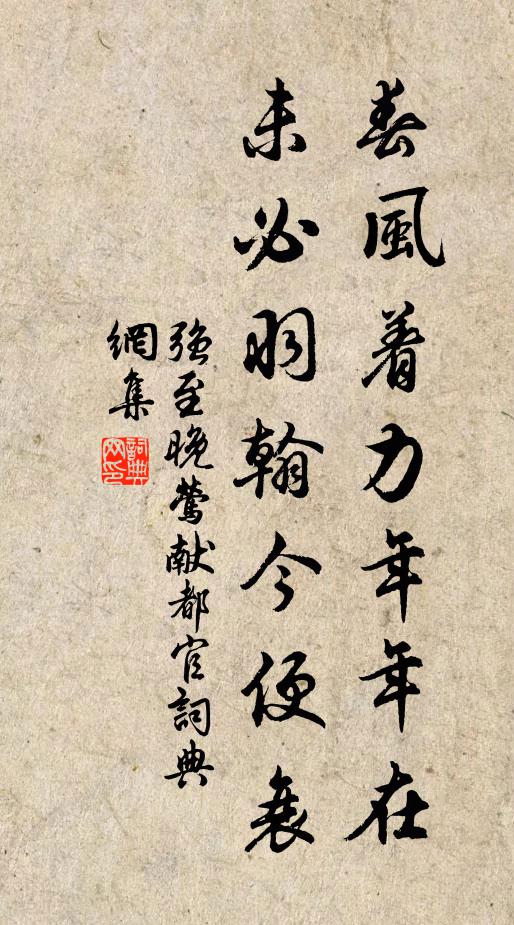 春風着力年年在
未必羽翰今便衰
強至晚鶯獻都官詞典
網集
詞典網印